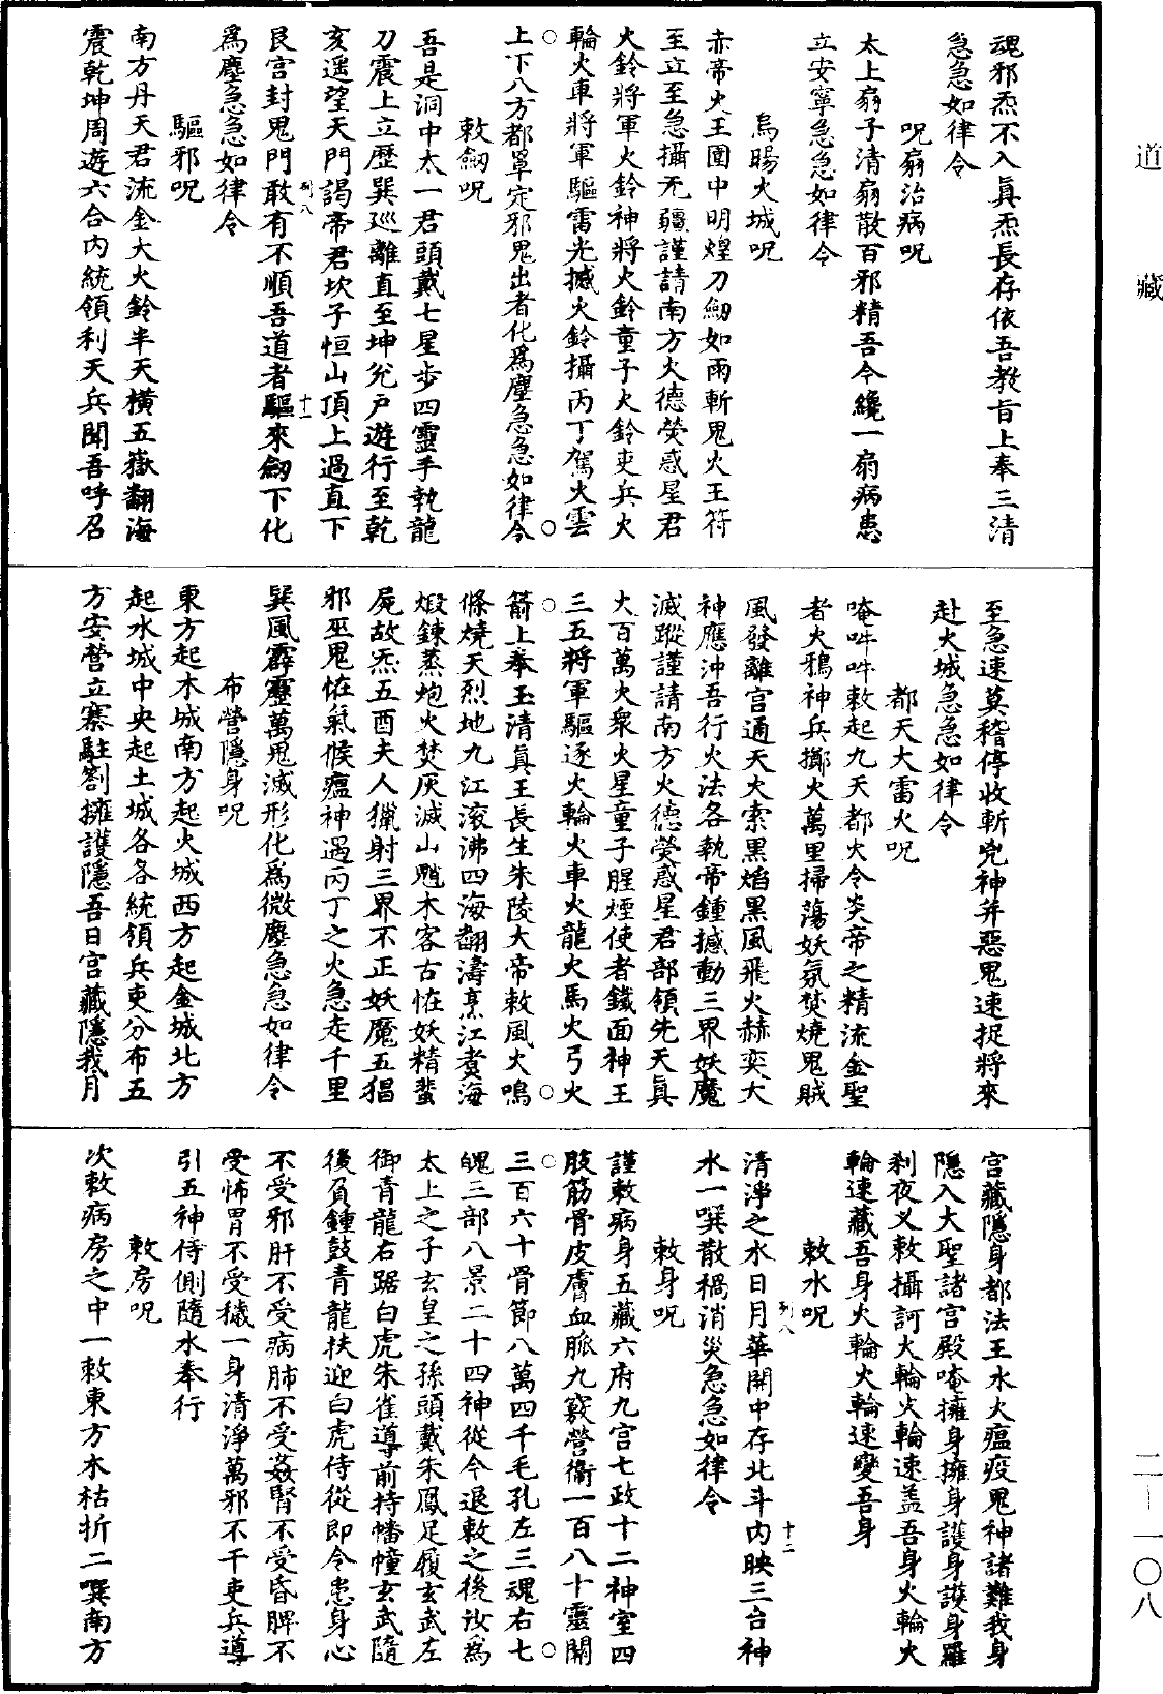 道藏
魂邪炁不入真炁長存依吾教旨上奉三清
急急如律令
呪扇治病呪
太上扇子清扇散百邪精吾今纔一扇病患
立安寧急急如律令
烏暘火城呪
赤帝火王圍中明煌刀劒如雨斬鬼火王符
至立至急攝无疆謹請南方火德熒惑星君
火鈴將軍火鈴神將火鈴童子火鈴吏兵火
輪火車將軍驅雷光撼火鈴攝丙丁駕火雲
上下八方都罩定邪鬼出者化爲塵急急如律令
敕劒呪
吾是洞中太一君頭戴七星步四靈手執龍
刀震上立歷巽廵離直至坤兊戶遊行至乾
亥遥望天門謁帝君坎子恒山頂上過直下
艮宫封鬼門敢有不順吾道者驅來劒下化
爲塵急急如律令
驅邪呪
南方丹天君流金大火鈴半天横五嶽翻海
震乾坤周遊六合内統領利天兵聞吾呼召
至急速莫稽停收斬兇神并惡鬼速捉將來
赴火城急急如律令
都天大雷火呪
唵吽吽敕起九天都火令炎帝之精流金聖
者火鴉神兵擲火萬里掃蕩妖氛焚燒鬼賊
風發離宫通天火索黑焰黑風飛火赫奕大
神應沖吾行火法各執帝鍾撼動三界妖魔
滅蹤謹請南方火德熒惑星君部領先天真
大百萬火衆火星童子腥煙使者鐵面神王
三五將軍驅逐火輪火車火龍火馬火弓火
箭上奉玉清真王長生朱陵大帝敕風火鳴
條燒天烈地九江滚沸四海翻濤烹江煑海
煅鍊蒸炮火焚灰滅山魈木客古恠妖精蜚
屍故炁五酉夫人獵射三界不正妖魔五猖
邪巫鬼恠氣候瘟神遇丙丁之火急走千里
巽風霹靂萬鬼滅形化爲微塵急急如律令
布營隱身呪
東方起木城南方起火城西方起金城北方
起水城中央起土城各各統領兵吏分布五
方安營立寨駐劄擁護隱吾日宫藏隱我月
宫藏隱身都法王水火瘟疫鬼神諸難我身
隱入大聖諸宫殿唵擁身擁身護身護身羅
刹夜乂敕攝訶火輪火輪速盖吾身火輪火
輪速藏吾身火輪火輪速變吾身
敕水呪
清淨之水日月華開中存北斗内映三台神
水一噀散禍消災急急如律令
敕身呪
謹敕病身五藏六府九宫七政十二神室四
肢筋骨皮膚血脈九竅營衞一百八十靈關
三百六十骨節八萬四千毛孔左三魂右七
魄三部八景二十四神從今退敕之後汝爲
太上之子玄皇之孫頭戴朱鳳足履玄武左
御青龍右踞白虎朱雀導前持幡幢玄武隨
後負鍾鼓青龍扶迎白虎侍從即令患身心
不受邪肝不受病肺不受姦腎不受昏脾不
受怖胃不受穢一身清淨萬邪不干吏兵導
引五神侍側隨水奉行
敕房呪
次敕病房之中一敕東方木枯折二噀南方
列八
十一
列八
十二
二－一〇八